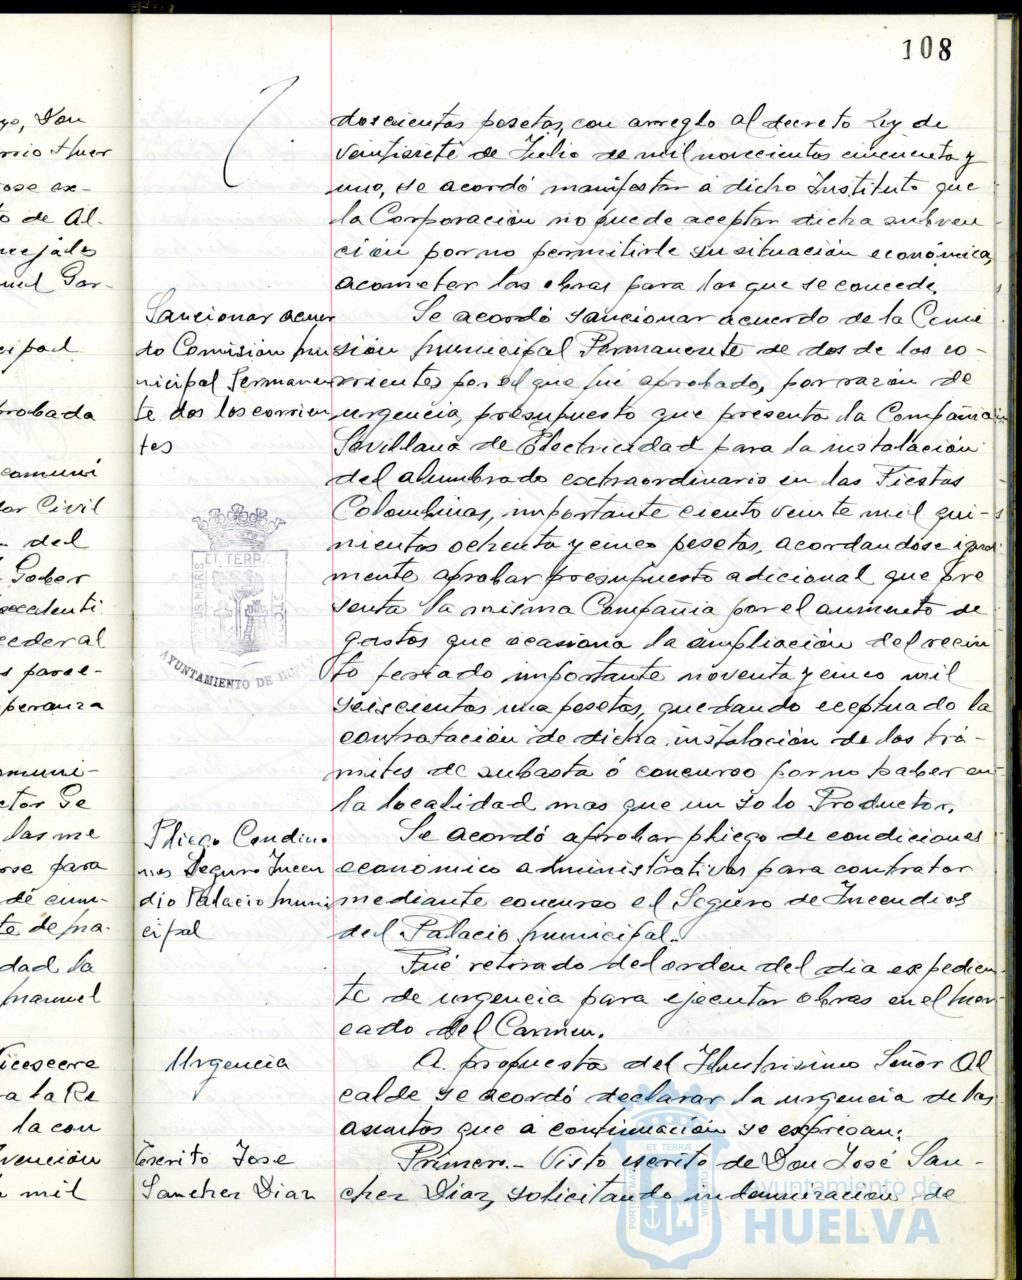 108
yo, Don
rrio Huer
ose ex-
to de Al-
ncejales
nuel Gar-
cipal
probada
comuni
dor Civil
n del
l Gober
scedenti
ceder al
s parce-
peranza
omuni-
ctor Ge
las me
rse para
dé cum-
te de ma-
dad la
manuel
Vicesecre
ra la Re
la con
vención
mil
doscientas pesetas, con arreglo al decreto Ley de
veintisiete de Julio de mil novecientos cincuenta y
uno, se acordó manifestar a dicho Instituto que
la Corporación no puede aceptar dicha subven-
ción por no permitirle su situación económica,
acometer las obras para las que se concede.
Sancionar acuer
do Comisión mu
nicipal Permanen
te dos los corrien
tes
Se acordó sancionar acuerdo de la Comi
sión municipal Permanente de dos de los co-
rrientes por el que fué aprobado, por razón de
urgencia, presupuesto que presenta la Compañia
Sevillana de Electricidad para la instalación
del alumbrado extraordinario en las Fiestas
Colombinas, importante ciento veinte mil qui-
nientas ochenta y cinco pesetas, acordandose igual
mente aprobar presupuesto adicional que pre
senta la misma Compañia por el aumento de
gastos que ocasiona la ampliación del recin
to feriado importante noventa y cinco mil
seiscientas una pesetas, quedando eceptuado la
contratación de dicha instalación de los trá-
mites de subasta ó concurso por no haber en
la localidad mas que un solo Productor.
ET TERRÆ
PORTUS MARIS
CUSTODIA
AYUNTAMIENTO DE HUELVA
Pliego Condicio
nes Seguro Incen
dio Palacio Muni
cipal
Se acordó aprobar pliego de condiciones
económico administrativas para contratar
mediante concurso el Seguro de Incendios
del Palacio Municipal.
Fué retirado del orden del dia expedien-
te de urgencia para ejecutar obras en el Mer-
cado del Carmen.
Urgencia
A propuesta del Ilustrisimo Señor Al
calde se acordó declarar la urgencia de los
asuntos que a continuación se expresan:
Escrito Jose
Sanchez Diaz
Primero.- Visto escrito de Don José San-
chez Diaz, solicitando indemnización de
ET TERRÆ
PORTUS MARIS
CUSTODIA
Ayuntamiento de
HUELVA